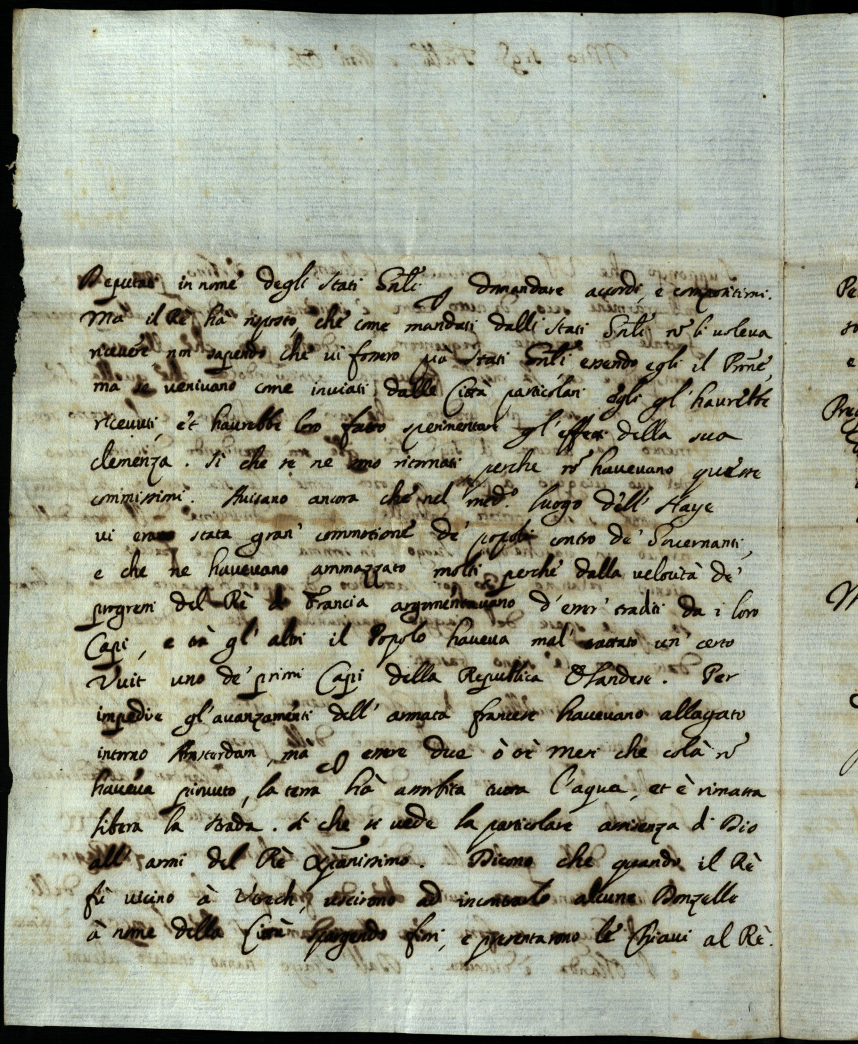 Deputati in nome degli stati Gnli p domandare accordi, e compositioni.
Ma il Rè ha risposto, che come mandati dalli stati Gnli nõ li voleva
ricevere non sapendo che vi fossero più stati Gnli essendo egli il Prñe,
ma se venivano come inviati dalle Città particolari egli gl'havrebbe
ricevuti, et havrebbe loro fatto sperimentare gl'effetti della sua
clemenza. Si che se ne sono ritornati, perche nõ havevano queste
commissioni. Avisano ancora che nel med.º luogo dell'Haye
vi era stata gran' commotione de' popoli contro de' Governanti,
e che ne havevano ammazzato molti, perche dalla velocità de'
progressi del Rè di Francia argomentavano d'esser' traditi da i loro
Capi, e trà gl'altri il Popolo haveva mal' trattato un' certo
Vuit uno de' primi Capi della Republica Olandese. Per
impedire gl'avanzamenti dell'armata francese havevano allagato
intorno Amsterdam, mà p essere due ò trè mesi che colà nõ
haveva piovuto, la terra hà assorbita tutta l'aqua, et è rimasta
libera la strada. Si che si vede la particolare assistenza di Dio
all'armi del Rè Xpianissimo. Dicono che quando il Rè
fù vicino à Utrech, uscirono ad incontrarlo alcune Donzelle
à nome della Città spargendo fiori, e presentarono le Chiavi al Rè.